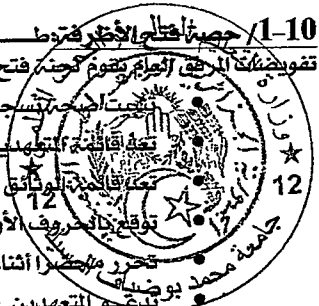 1-10/ حصة فتح الأظرفة: ط
تفويضات المرفق العام تقوم لجنة فتح
تثبت صحة تسجـ
تعد قائمة المتعهدـ
تعد قائمة الوثائق
توقع بالحروف الأو
تحرر محضرا أثنا
المتعهدين
وزارة
12
12
جامعة محمد بوضياف